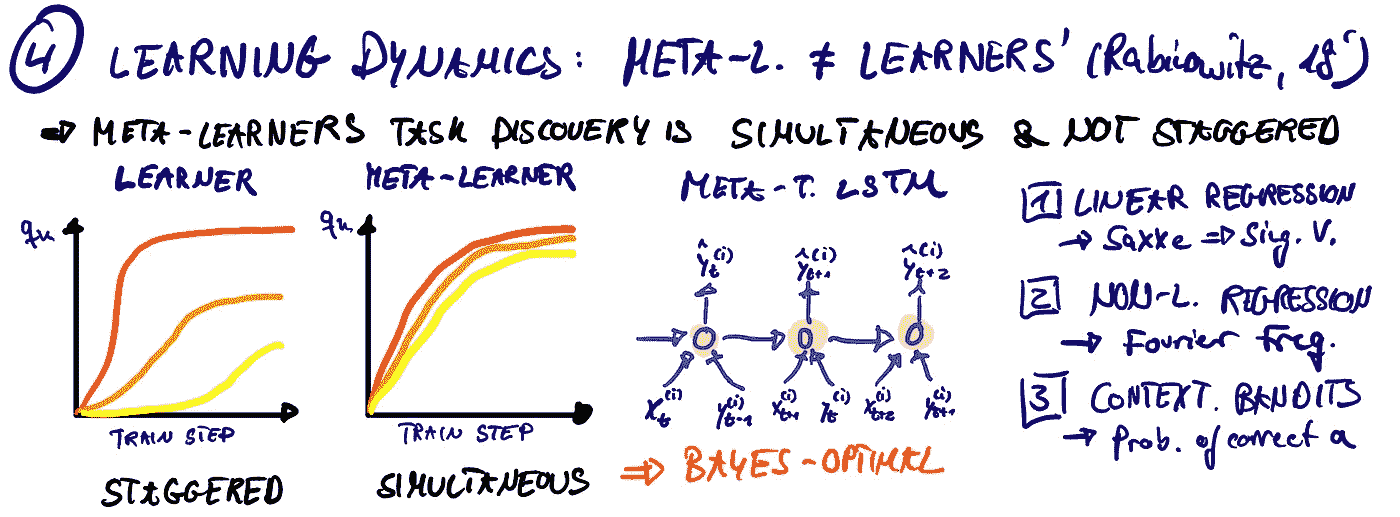 4 LEARNING DYNAMICS: META-L. ≠ LEARNERS' (Rabinowitz, 18')
⇒ META-LEARNERS TASK DISCOVERY IS SIMULTANEOUS & NOT STAGGERED
LEARNER
qu
TRAIN STEP
STAGGERED
META-LEARNER
qu
TRAIN STEP
SIMULTANEOUS
META-T. LSTM
ŷt(i) ŷt+1(i) ŷt+2(i)
xt(i) yt-1(i) xt+1(i) yt(i) xt+2(i) yt+1(i)
⇒ BAYES-OPTIMAL
1 LINEAR REGRESSION
→ Saxxe ⇒ Sing. V.
2 NON-L. RIGRESSION
→ Fourier Freq.
3 CONTEXT. BANDITS
→ Prob. of correct a